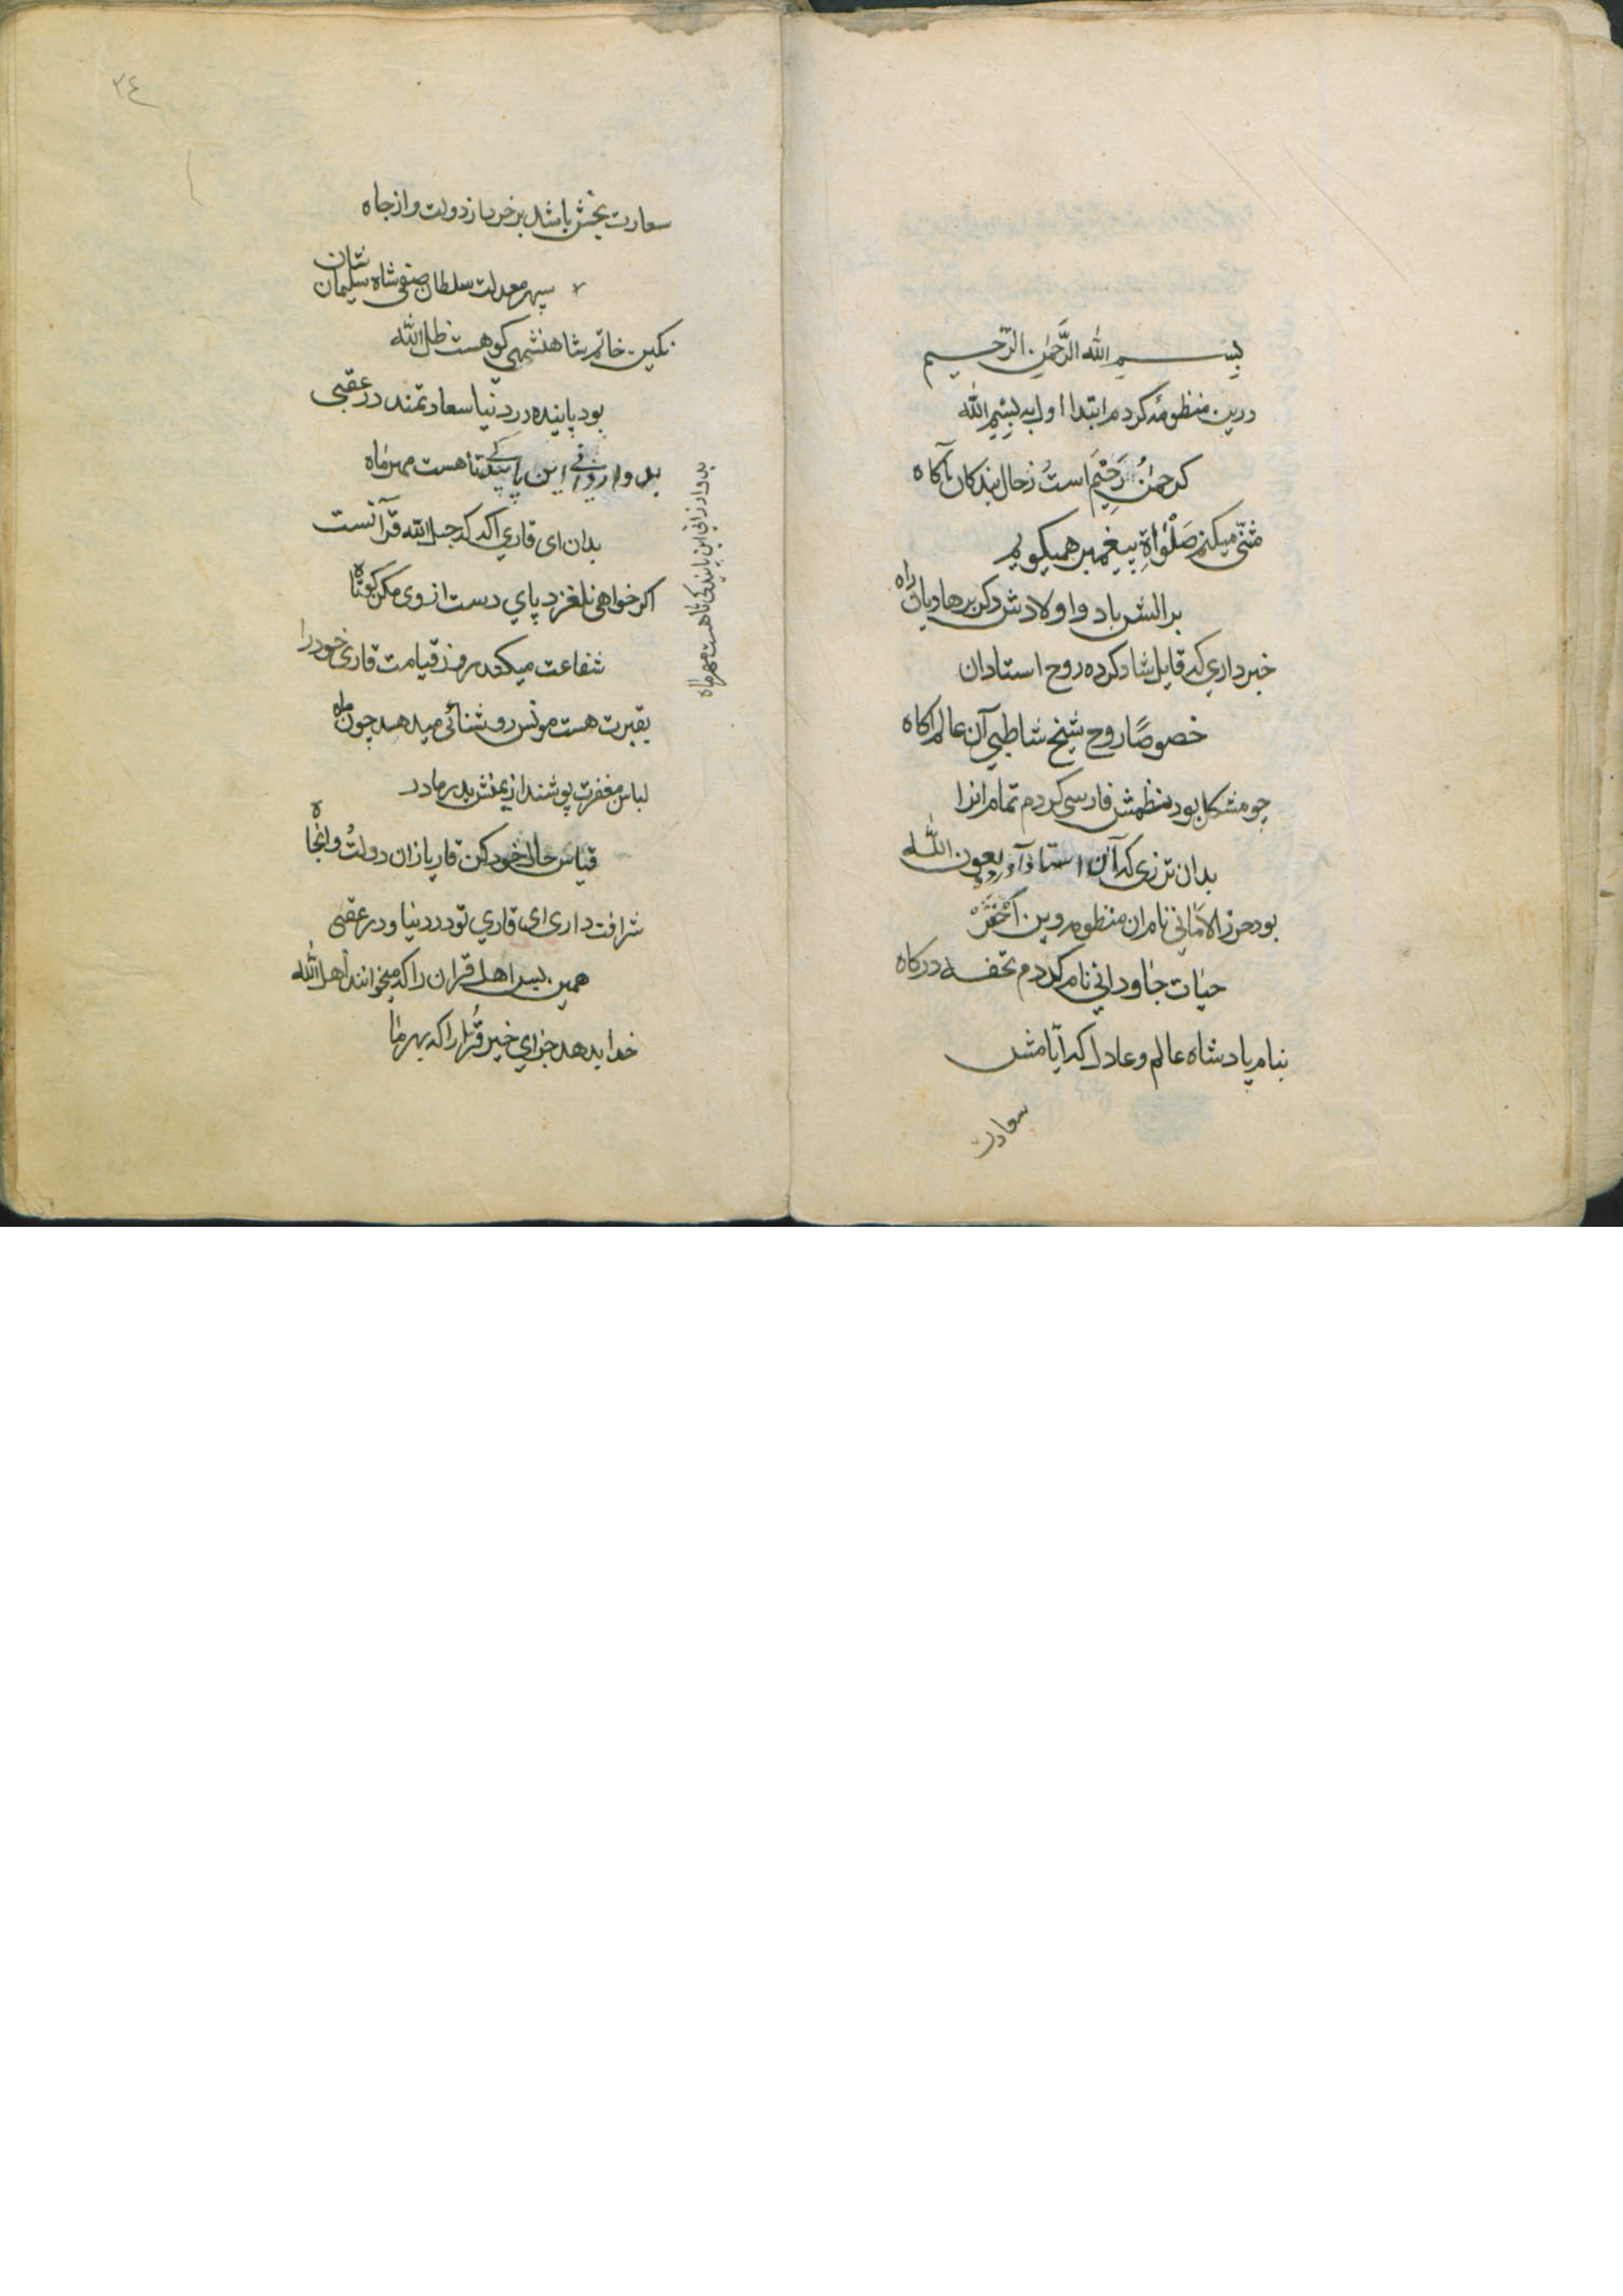 بسم الله الرَّحمٰن الرّحیم
درین منظومه کردم ابتدا اولا به بِسْمِ الله
که رحمٰنُ رَحِیْمَ است زحال بندکان آکاه
مثنّی میکنم صَلْوٰاةِ پیغمبر همیکویم
برالش باد و اولادش دکر بر هادیان راه
خبرداری که قایل شاد کرده روح استادان
خصوصًا روح شیخ شاطبی آن عالم آکاه
چو مشکل بود نظمش فارسی کردم تمام انرا
بدان ترزی که آن استاد آورد بعون الله
بود حرز الامٰانی نام ان منظوم و این اَحْقَرْ
حیٰات جٰاودانی نام کردم تحفه درکاه
بنام پادشاه عالم و عادل که ایّامش
سعادت
٢٤
سعادت بخش باشد برخورد از دولت و از جاه
سپهر معدلت سلطان صفی شاه سلیمان شان
نکین خاتم شاهنشهی کو هست ظل الله
بود پاینده در دنیا سعادتمند در عقبی
بدو ارزانی این پایندکی تا هست مهر و ماه
بدو ارزانی این پایندکی تا هست مهر و ماه
بدان ای قاری اکه که حبل الله قرآنست
اکر خواهی نلغزد پای دست از وی مکن کوتاه
شفاعت میکند روز قیامت قاری خود را
بقبرت هست مونس روشنائی میدهد چون ماه
لباس مغفرت پوشند از یمنش پدر مادر
قیاس حال خود کن قاریا زان دولتُ وانجاه
شرافت داری ای قاری تو در دنیا و در عقبی
همین بس اهل قران را که میخوانند اهل الله
خدا بدهد جزای خیر قُرّا را که بهر ما